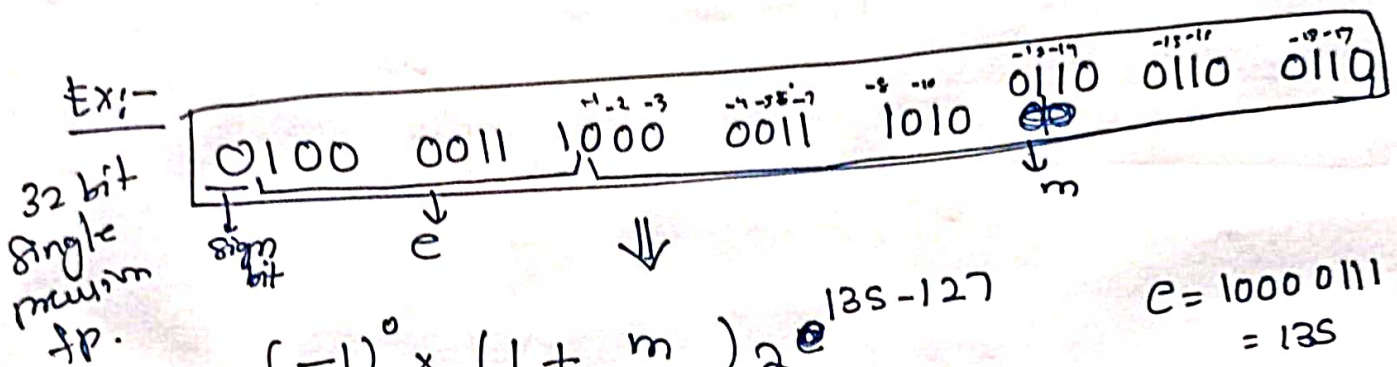 Ex:-
32 bit
single
precision
fp.
-1 -2 -3
0100 0011 1000 0011 1010 0110 0110 0110
sign
bit
e
m
⇓
(-1)⁰ × (1 + m) 2 135-127
e = 1000 0111
= 135